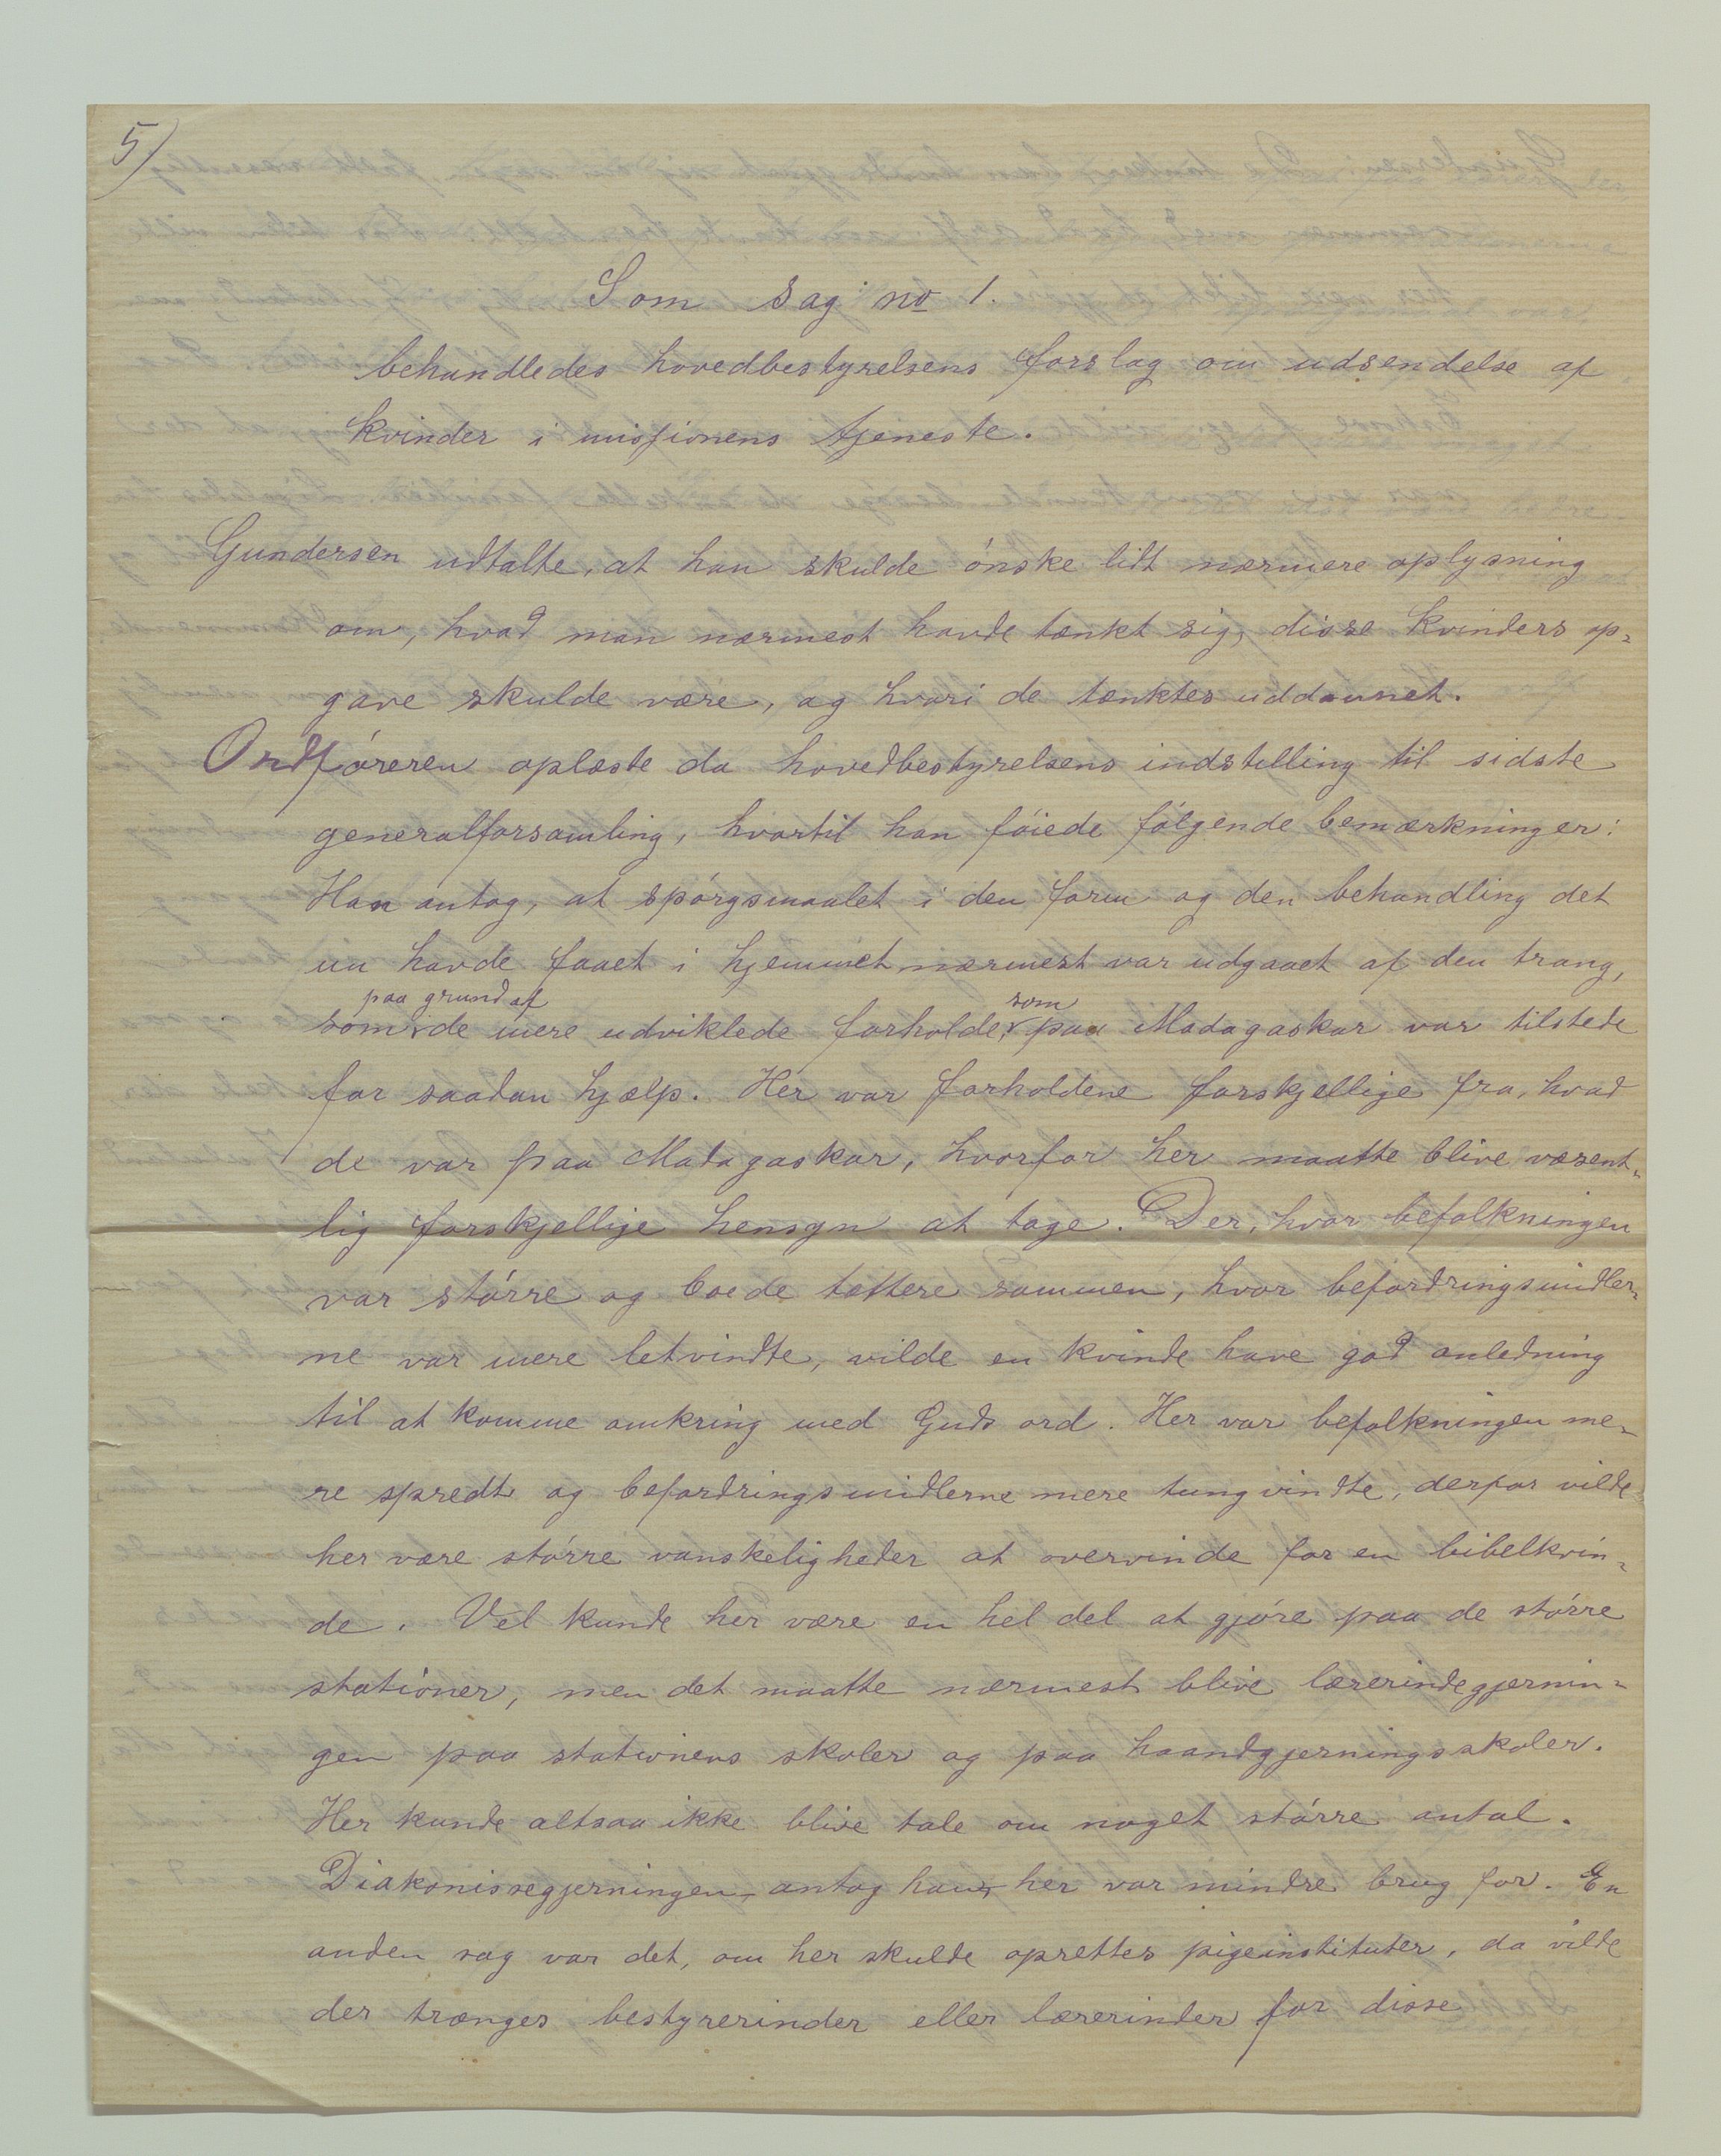 5)
Som sag no 1.
behandledes hovedbestyrelsens forslag om udsendelse af
kvinder i missionens tjeneste.
Gundersen udtalte, at han skulde ónske lidt nærmere oplysning
om, hvad man nærmest havde tænkt sig, disse kvinders op-
gave skulde være, og hvori de tænktes uddannet.
Ordfóreren oplæste da hovedbestyrelsens indstilling til sidste
generalforsamling, hvortil han fóiede fólgende bemærkninger:
Han antog, at spórgsmaalet i den form og den behandling det
nu havde faaet i hjemmet nærmest var udgaaet af den trang,
paa grund af som
som de mere udviklede forholde, paa Madagaskar var tilstede
for saadan hjælp. Her var forholdene forskjellige fra, hvad
de var paa Madagaskar, hvorfor her maatte blive væsent-
lig forskjellige hensyn at tage. Der, hvor befolkningen
var stórre og boede tættere sammen, hvor befordringsmidler-
ne var mere letvindte, vilde en kvinde have god anledning
til at komme omkring med Guds ord. Her var befolkningen me-
re spredt og befordringsmidlerne mere tungvindte, derfor vilde
her være stórre vanskeligheder at overvinde for en bibelkvin-
de. Vel kunde her være en hel del at gjóre paa de stórre
stationer, men det maatte nærmest blive lærerindegjernin-
gen paa stationens skoler og paa haandgjerningsskoler.
Her kunde altsaa ikke blive tale om noget stórre antal.
Diakonissegjerningen antog han, her var mindre brug for. En
anden sag var det, om her skulde oprettes pigeinstituter, da vilde
der trænges bestyrerinder eller lærerinder for disse